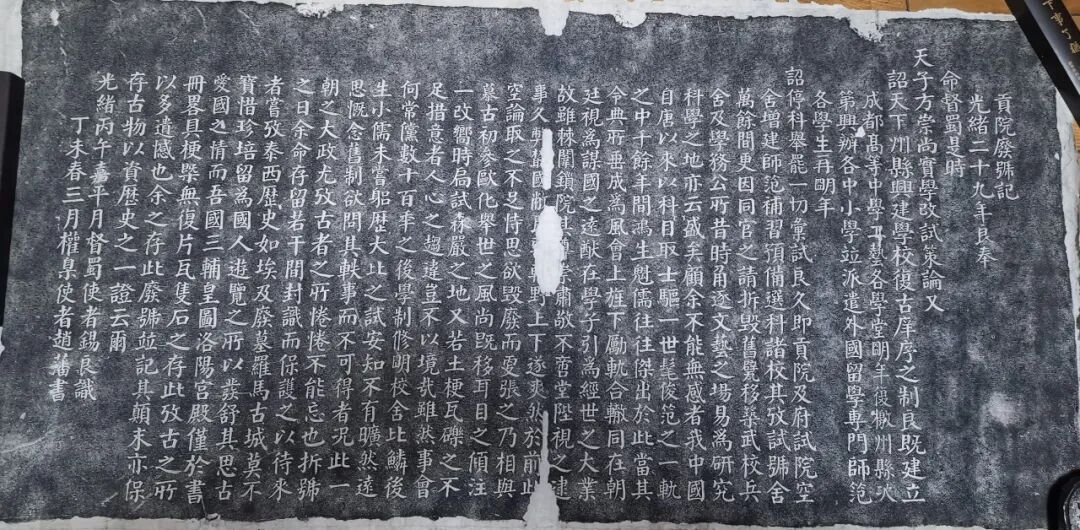 貢院廢號記
光緒二十九年良奉
命督蜀是時
天子方崇尚實學改試策論又
詔天下州縣興建學校復古庠序之制良既建立
成都高等中學工藝各學堂明年復檄州縣次
第興辦各中小學並派遣外國留學專門師範
各學生再明年
詔停科舉罷一切彙試良久即貢院及府試院空
舍增建師范補習預備選科諸校其攷試號舍
萬餘間更因同官之請拆毀舊甓移築武校兵
舍及學務公所昔時角逐文藝之場易為研究
科學之地亦云盛矣顧余不能無感者我中國
自唐以來以科目取士驅一世髦俊范之一軌
之中千餘年間鴻生魁儒往往傑出於此當其
令典所垂成為風會上旌下勵軌合轍同在朝
廷視為謀國之遠猷在學子引為經世之大業
故雖棘闈鎖院其尊崇肅敬不啻堂陛視之建
事久弊 國 野上下遂爽然於前此
空論取之不足恃思欲毀廢而更張之乃相與
摹古初參歐化舉世之風尚既移耳目之傾注
一改嚮時局試森嚴之地又若土梗瓦礫之不
足措意者人心之趨違豈不以境哉雖然事會
何常儻數十百年之後學制修明校舍比鱗後
生小儒未嘗躬歷大比之試安知不有曠然遠
思慨念舊制欲問其軼事而不可得者況此一
朝之大政尤攷古者之所惓惓不能忘也拆號
之日余命存留若干間封識而保護之以待來
者嘗攷泰西歷史如埃及廢墓羅馬古城莫不
寶惜珍培留為國人遊覽之所以發舒其思古
愛國之情而吾國三輔皇圖洛陽宮殿僅於書
冊畧具梗槩無復片瓦隻石之存此攷古之所
以多遺憾也余之存此廢號並記其顛末亦保
存古物以資歷史之一證云爾
光緒丙午嘉平月督蜀使者錫良識
丁未春三月權臬使者趙藩書